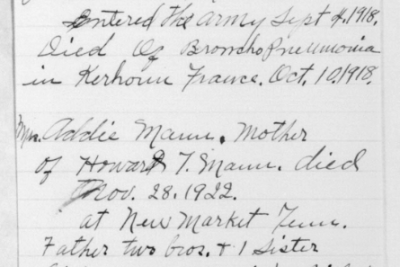 Entered the army Sept 4, 1918.
Died Of Broncho Pneumonia
in Kerhoun France. Oct. 10, 1918.
Mrs. Addie Mann. Mother
of Howard T. Mann. died
Nov. 28. 1922.
at New Market Tenn.
Father two bros. & 1 sister